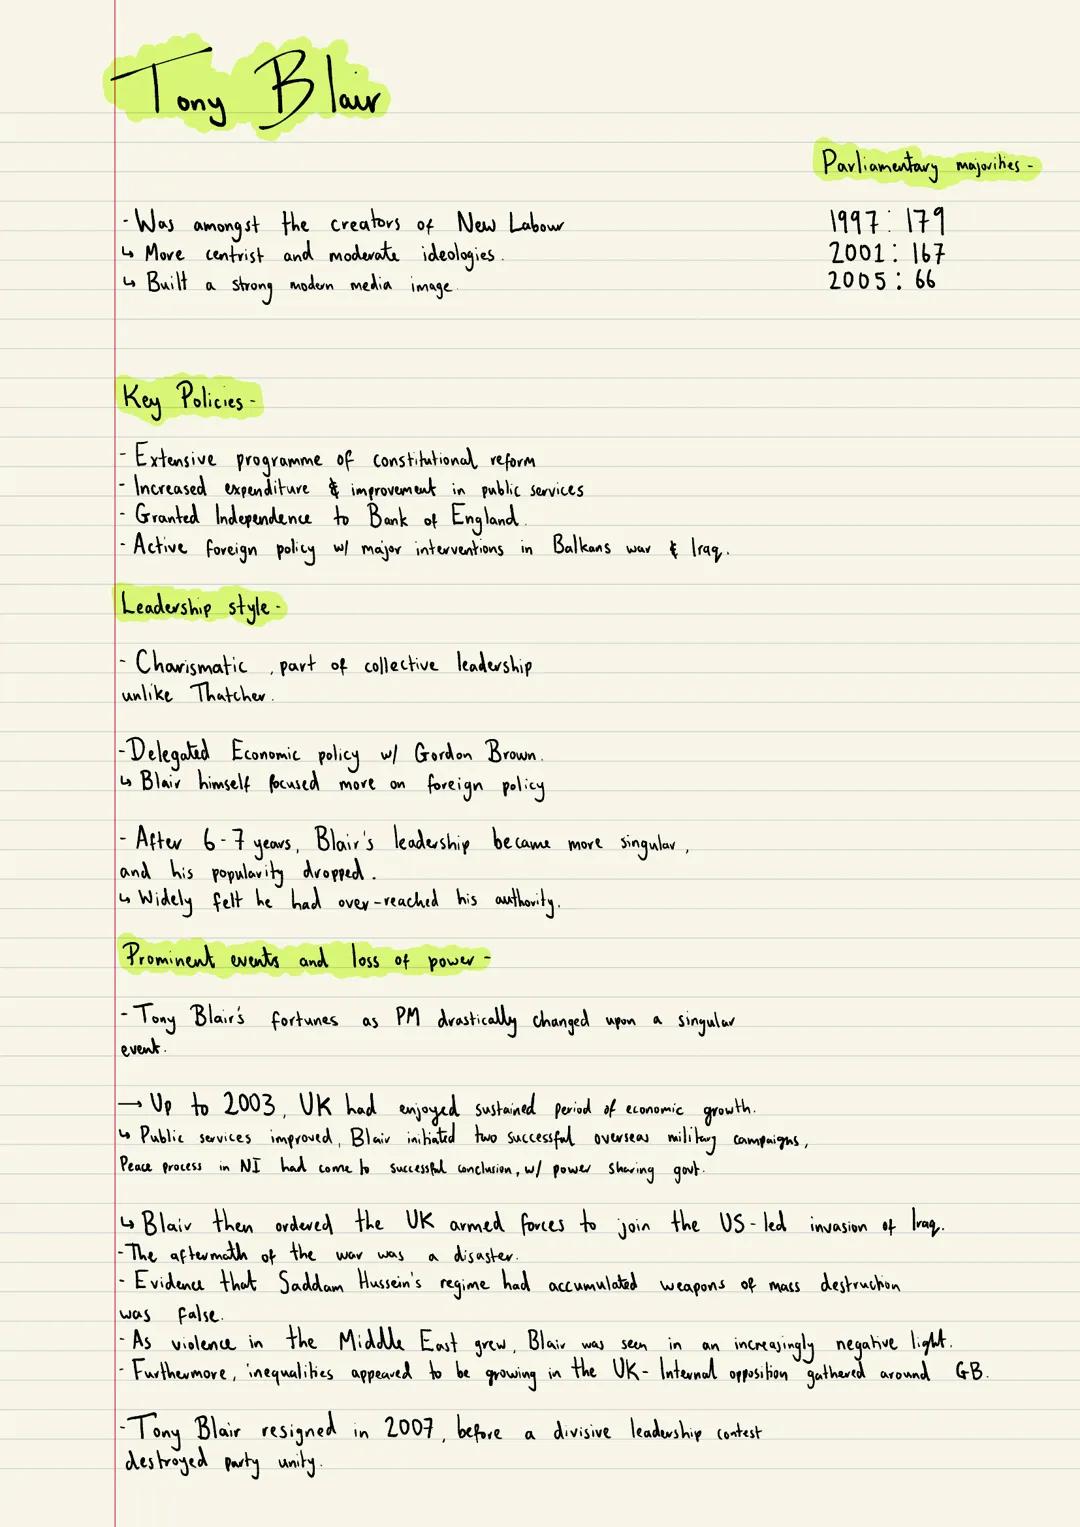 Tony Blair
Parliamentary majorities -
1997: 179
2001: 167
2005: 66
- Was amongst the creators of New Labour
↳ More centrist and moderate ideologies.
↳ Built a strong modern media image.
Key Policies -
- Extensive programme of constitutional reform
- Increased expenditure & improvement in public services
- Granted Independence to Bank of England.
- Active foreign policy w/ major interventions in Balkans war & Iraq.
Leadership style -
- Charismatic, part of collective leadership
unlike Thatcher.
- Delegated Economic policy w/ Gordon Brown.
↳ Blair himself focused more on foreign policy
- After 6-7 years, Blair's leadership became more singular,
and his popularity dropped.
↳ Widely felt he had over-reached his authority.
Prominent events and loss of power -
- Tony Blair's fortunes as PM drastically changed upon a singular
event.
→ Up to 2003, UK had enjoyed sustained period of economic growth.
↳ Public services improved, Blair initiated two successful overseas military campaigns,
Peace process in NI had come to successful conclusion, w/ power sharing govt.
↳ Blair then ordered the UK armed forces to join the US-led invasion of Iraq.
- The aftermath of the war was a disaster.
- Evidence that Saddam Hussein's regime had accumulated weapons of mass destruction
was false.
- As violence in the Middle East grew, Blair was seen in an increasingly negative light.
- Furthermore, inequalities appeared to be growing in the UK - Internal opposition gathered around GB.
- Tony Blair resigned in 2007, before a divisive leadership contest
destroyed party unity.